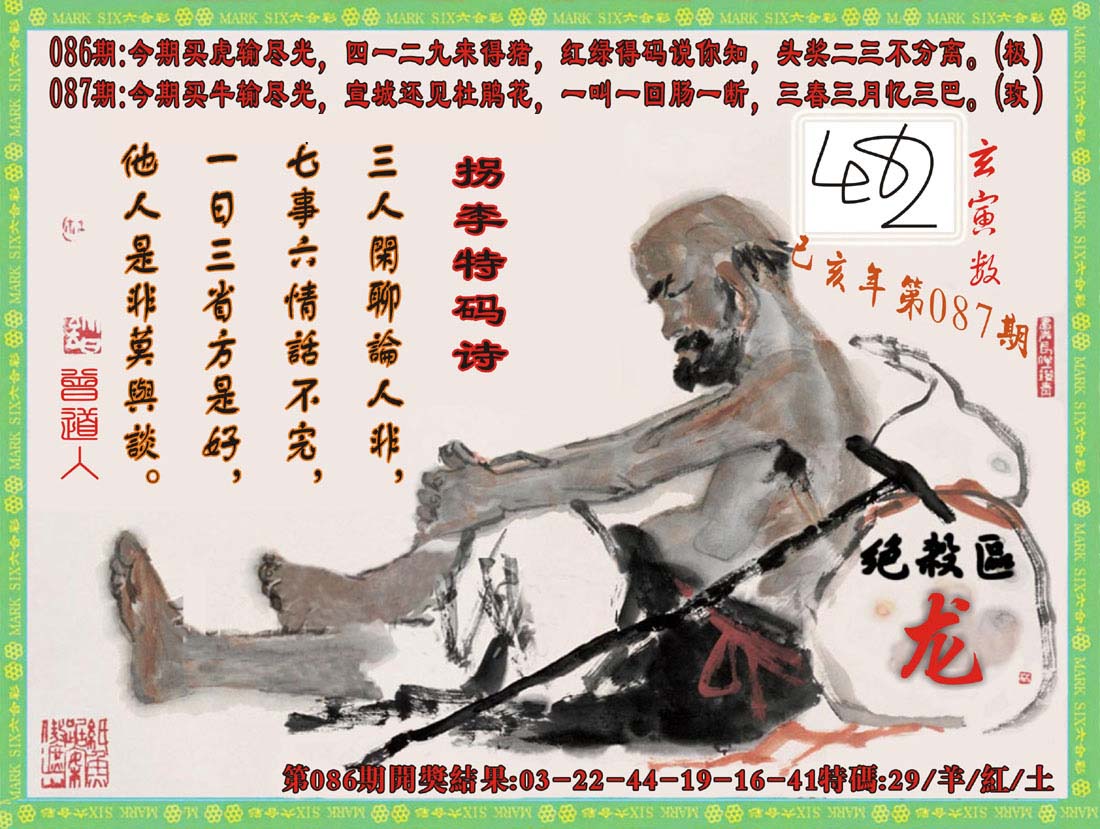 MARK SIX六合彩
086期:今期买虎输尽光，四一二九来得猪，红绿得码说你知，头奖二三不分离。(极)
087期:今期买牛输尽光，宣城还见杜鹃花，一叫一回肠一断，三春三月忆三巴。(玫)
玄寅数
己亥年第087期
拐李特码诗
三人閑聊論人非，
七事六情話不完，
一日三省方是好，
他人是非莫與談。
曾道人
绝殺區
龙
第086期開獎結果:03-22-44-19-16-41特碼:29/羊/紅/土